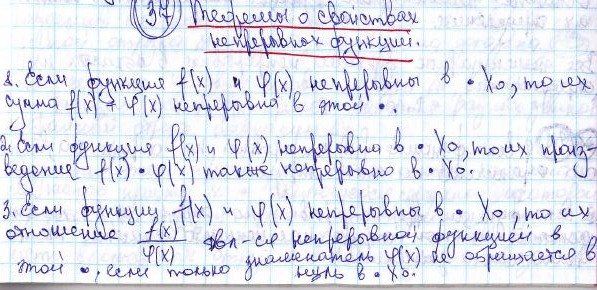 37 Теоремы о свойствах
непрерывных функций.
1. Если функция f(x) и φ(x) непрерывны в • X₀, то их
сумма f(x) + φ(x) непрерывна в этой •.
2. Если функция f(x) и φ(x) непрерывна в • X₀, то их произ-
ведение f(x) • φ(x) также непрерывно в • X₀.
3. Если функции f(x) и φ(x) непрерывны в • X₀, то их
отношение f(x)/φ(x) явл-ся непрерывной функцией в
этой •, если только знаменатель φ(x) не обращается в
нуль в • X₀.